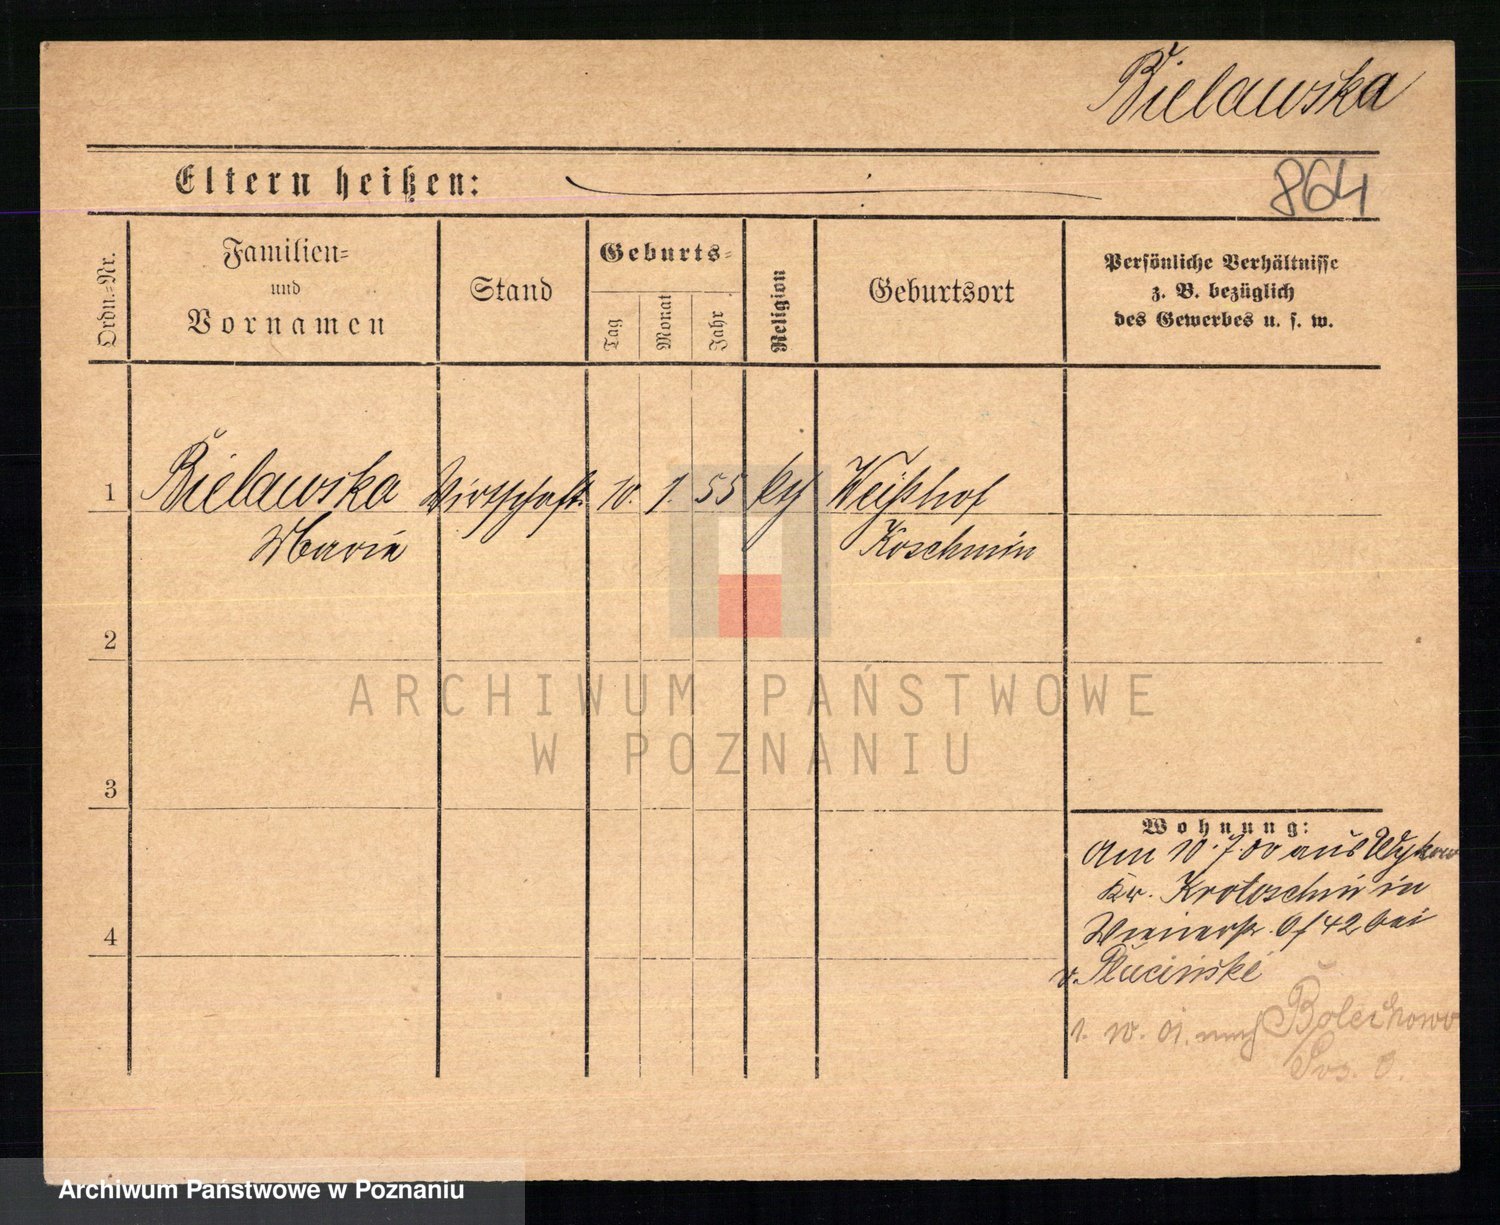 Bielawska
864
Eltern heißen:
Ordn.-Nr.
Familien-
und
Vornamen
Stand
Geburts-
Tag
Monat
Jahr
Religion
Geburtsort
Persönliche Verhältnisse
z. B. bezüglich
des Gewerbes u. s. w.
1 Bielawska Wirtschaft. 10. 1. 55 kth Weißhof
Marie Koschmin
2
ARCHIWUM PAŃSTWOWE
W POZNANIU
3
Wohnung:
Am 10.7.00 aus
Kr. Krotoschin in
Wienerstr. 42 bei
v. Plucinski
4
1. 10. 01. nach Bolechowo
Pos. O.
Archiwum Państwowe w Poznaniu